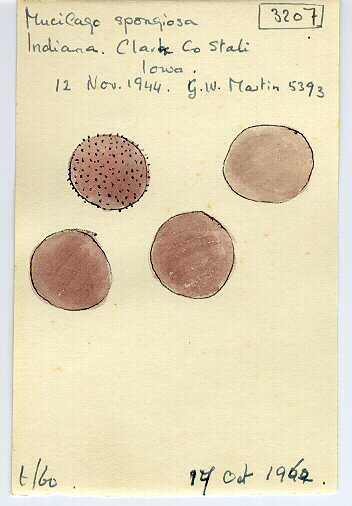 Mucilago spongiosa
3207
Indiana. Clark Co Stali
Iowa.
12 Nov. 1944. G.W. Martin 5393
t/60.
17 Oct 1962.